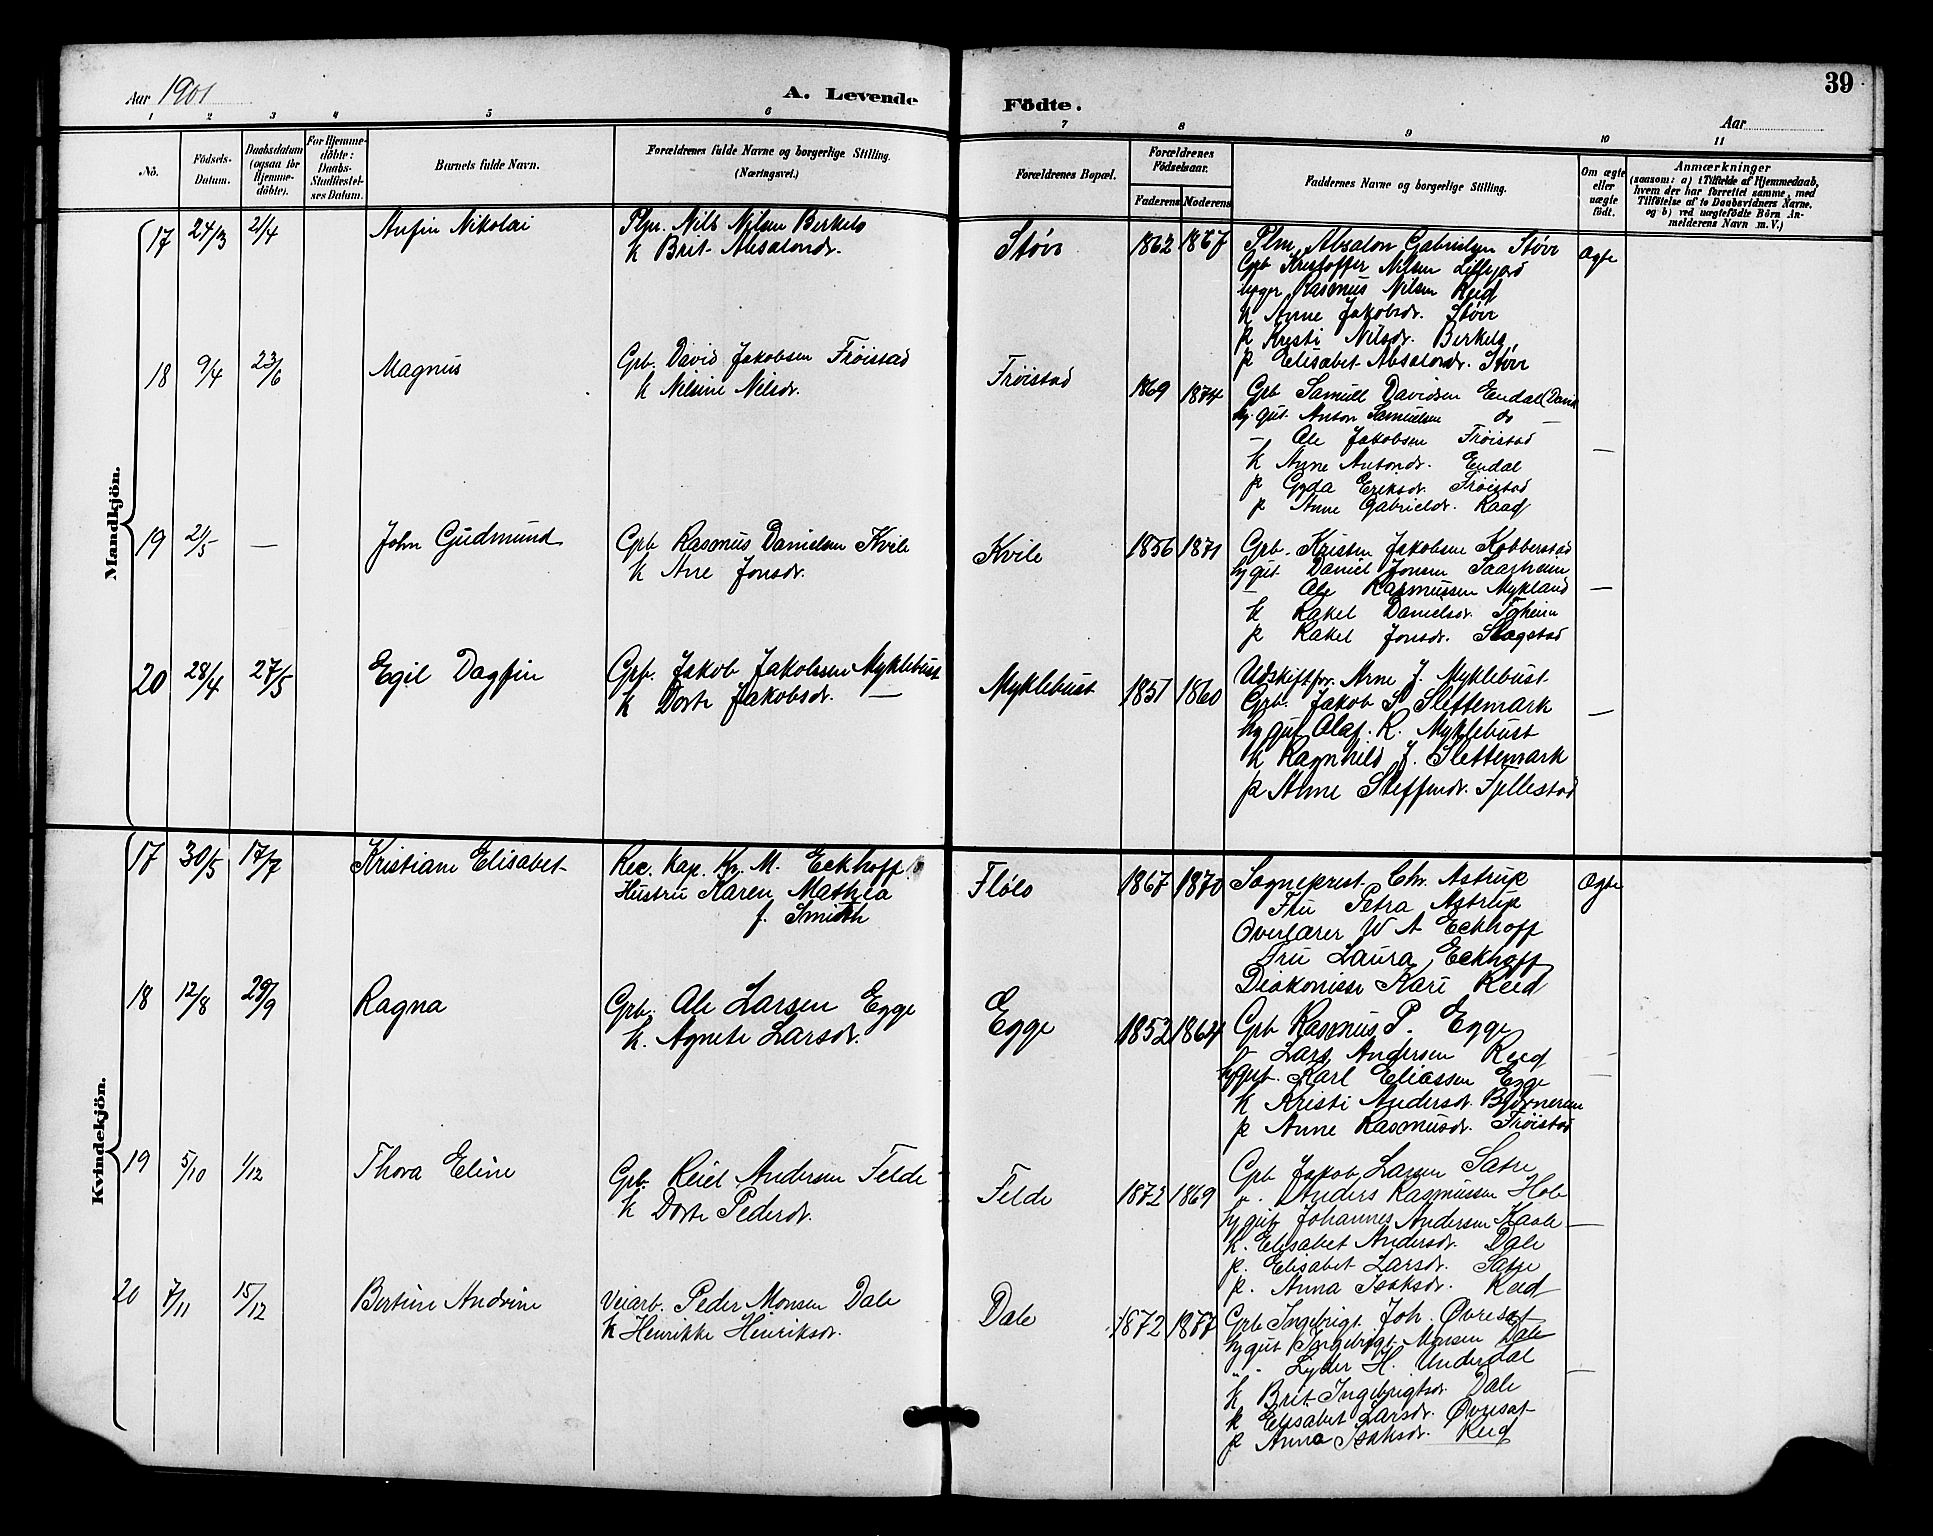 39
Aar 1901
A. Levende Födte.
Aar
1 2 3 4 5 6 7 8 9 10 11
No.
Födsels-Datum.
Daabsdatum (ogsaa for Hjemme-döbte).
For Hjemme-döbte: Daabs-Stadfæstel-ses Datum.
Barnets fulde Navn.
Forældrenes fulde Navne og borgerlige Stilling. (Næringsvei.)
Forældrenes Bopæl.
Forældrenes Födselsaar.
Faderens Moderens
Faddernes Navne og borgerlige Stilling.
Om ægte eller uægte födt.
Anmærkninger
(saasom: a) i Tilfælde af Hjemmedaab,
hvem der har forrettet samme, med
Tilföielse af to Daabsvidners Navne,
og b) ved uægtefödte Börn An-
melderens Navn m. V.)
Mandkjön.
17 24/3 21/4 Anfin Nikolai
Plm. Nils Nilsen Birkelo
k Brit Absalondr.
Støvr 1862 1867
Plm. Absalon Gabrielsen Støvr Ægte
Grb Kristoffer Nilsen
Rasmus Nilsen Reed
k Anne Jakobsdr. Støvr
p Kristi Nilsdr. Birkelo
p Elisabet Absalondr. Støvr
18 9/4 23/6 Magnus
Grb. David Jakobsen Frøistad
k Nilsine Nilsdr.
Frøistad 1869 1874
Grb Samuel Davidsen Endal
ug gut. Anton Samuelsen do —
— Ole Jakobsen Frøistad
k Anne Antondr. Endal
p Gyda Eriksdr. Frøistad
p Anne Gabrieldr. Raad
19 2/5 — John Gudmund
Grb Rasmus Danielsen Kvile
k Ane Jonsdr.
Kvile 1856 1871
Grb. Kristen Jakobsen Kobberstad
ug gut Daniel Jonsen Saasheim
— Ole Rasmussen Mykland —
k Rakel Danielsdr.
p Rakel Jonsdr. Slagstad
20 28/4 27/5 Egil Dagfin
Grb. Jakob Jakobsen Myklebust
k Dorte Jakobsdr. —
Myklebust 1851 1860
Udskiftfor. Arne J. Myklebust
Grb. Jakob S Slettemark —
ug gut Olaf. R. Myklebust
k Ragnhild J. Slettemark
p Anne Steffendr. Fjellestad
Kvindekjön.
17 30/5 17/7 Kristiane Elisabet
Rec. Kap. Kr. M. Eckhoff
Hustru Karen Mathea
f. Smith
Florø 1867 1870
Sogneprest Chr. Astrup Ægte
Fru Petra Astrup
Overlærer W A Eckhoff
Fru Laura Eckhoff
Diakonisse Kari Reed
18 12/8 29/9 Ragna
Grb. Ole Larsen Egge
k. Agnete Larsdr.
Egge 1852 1864
Grb Rasmus P. Egge
— Lars Andersen Reed —
ug gut. Karl Eliassen Egge —
k Kristi Andersdr. Bjørnereim
p Anne Rasmusdr. Frøistad
19 5/10 1/12 Thora Eline
Grb. Reiel Andersen Felde
k Dorte Pedersdr.
Felde 1872 1869
Grb Jakob Larsen Satre
" Anders Rasmussen Hole
ug gut Johannes Andersen Kaale —
k. Elisabet Andersdr. Dale
p. Elisabet Larsdr. Satre
p. Anna Isaksdr. Reed
20 7/11 15/12 Bertine Andrine
Veiarb. Peder Monsen Dale
k Henrikke Henriksdr.
Dale 1872 1877
Grb Ingebrigt Joh. Øvreset
ug gut Ingebrigt Monsen Dale
" - Lyder H. Underdal —
k Brit Ingebrigtsdr. Dale
k Elisabet Larsdr. Øvreset
p Anna Isaksdr. Reed